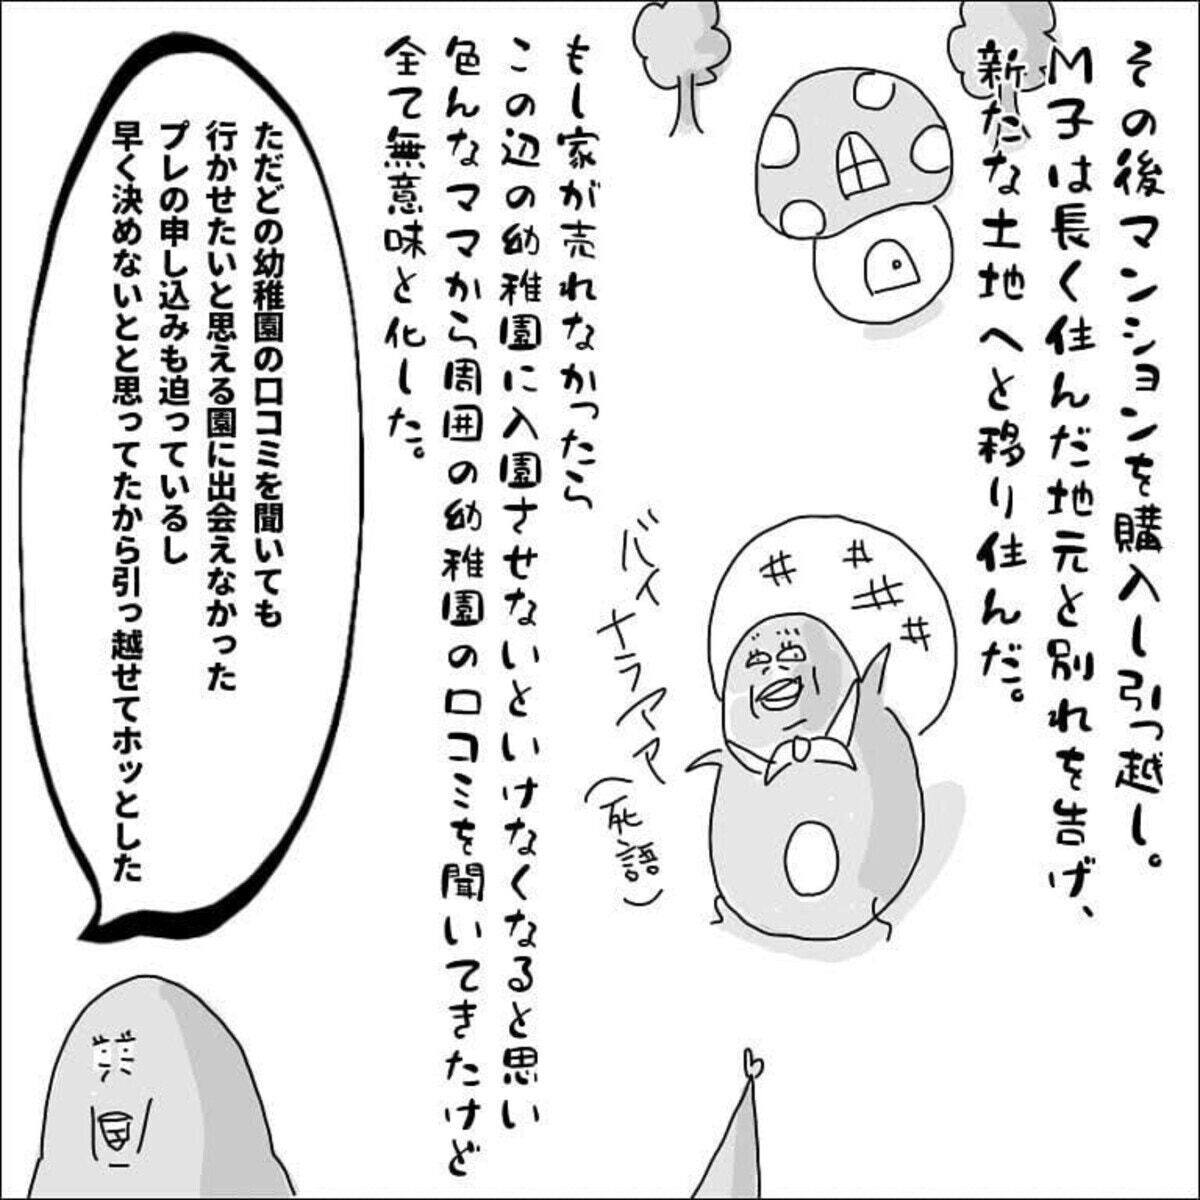 その後マンションを購入し引っ越し。
M子は長く住んだ地元と別れを告げ、
新たな土地へと移り住んだ。
バイ
ナラママ
(死語)
もし家が売れなかったら
この辺の幼稚園に入園させないといけなくなると思い
色んなママから周囲の幼稚園の口コミを聞いてきたけど
全て無意味と化した。
ただどの幼稚園の口コミを聞いても
行かせたいと思える園に出会えなかった
プレの申し込みも迫っているし
早く決めないとと思ってたから引っ越せてホッとした